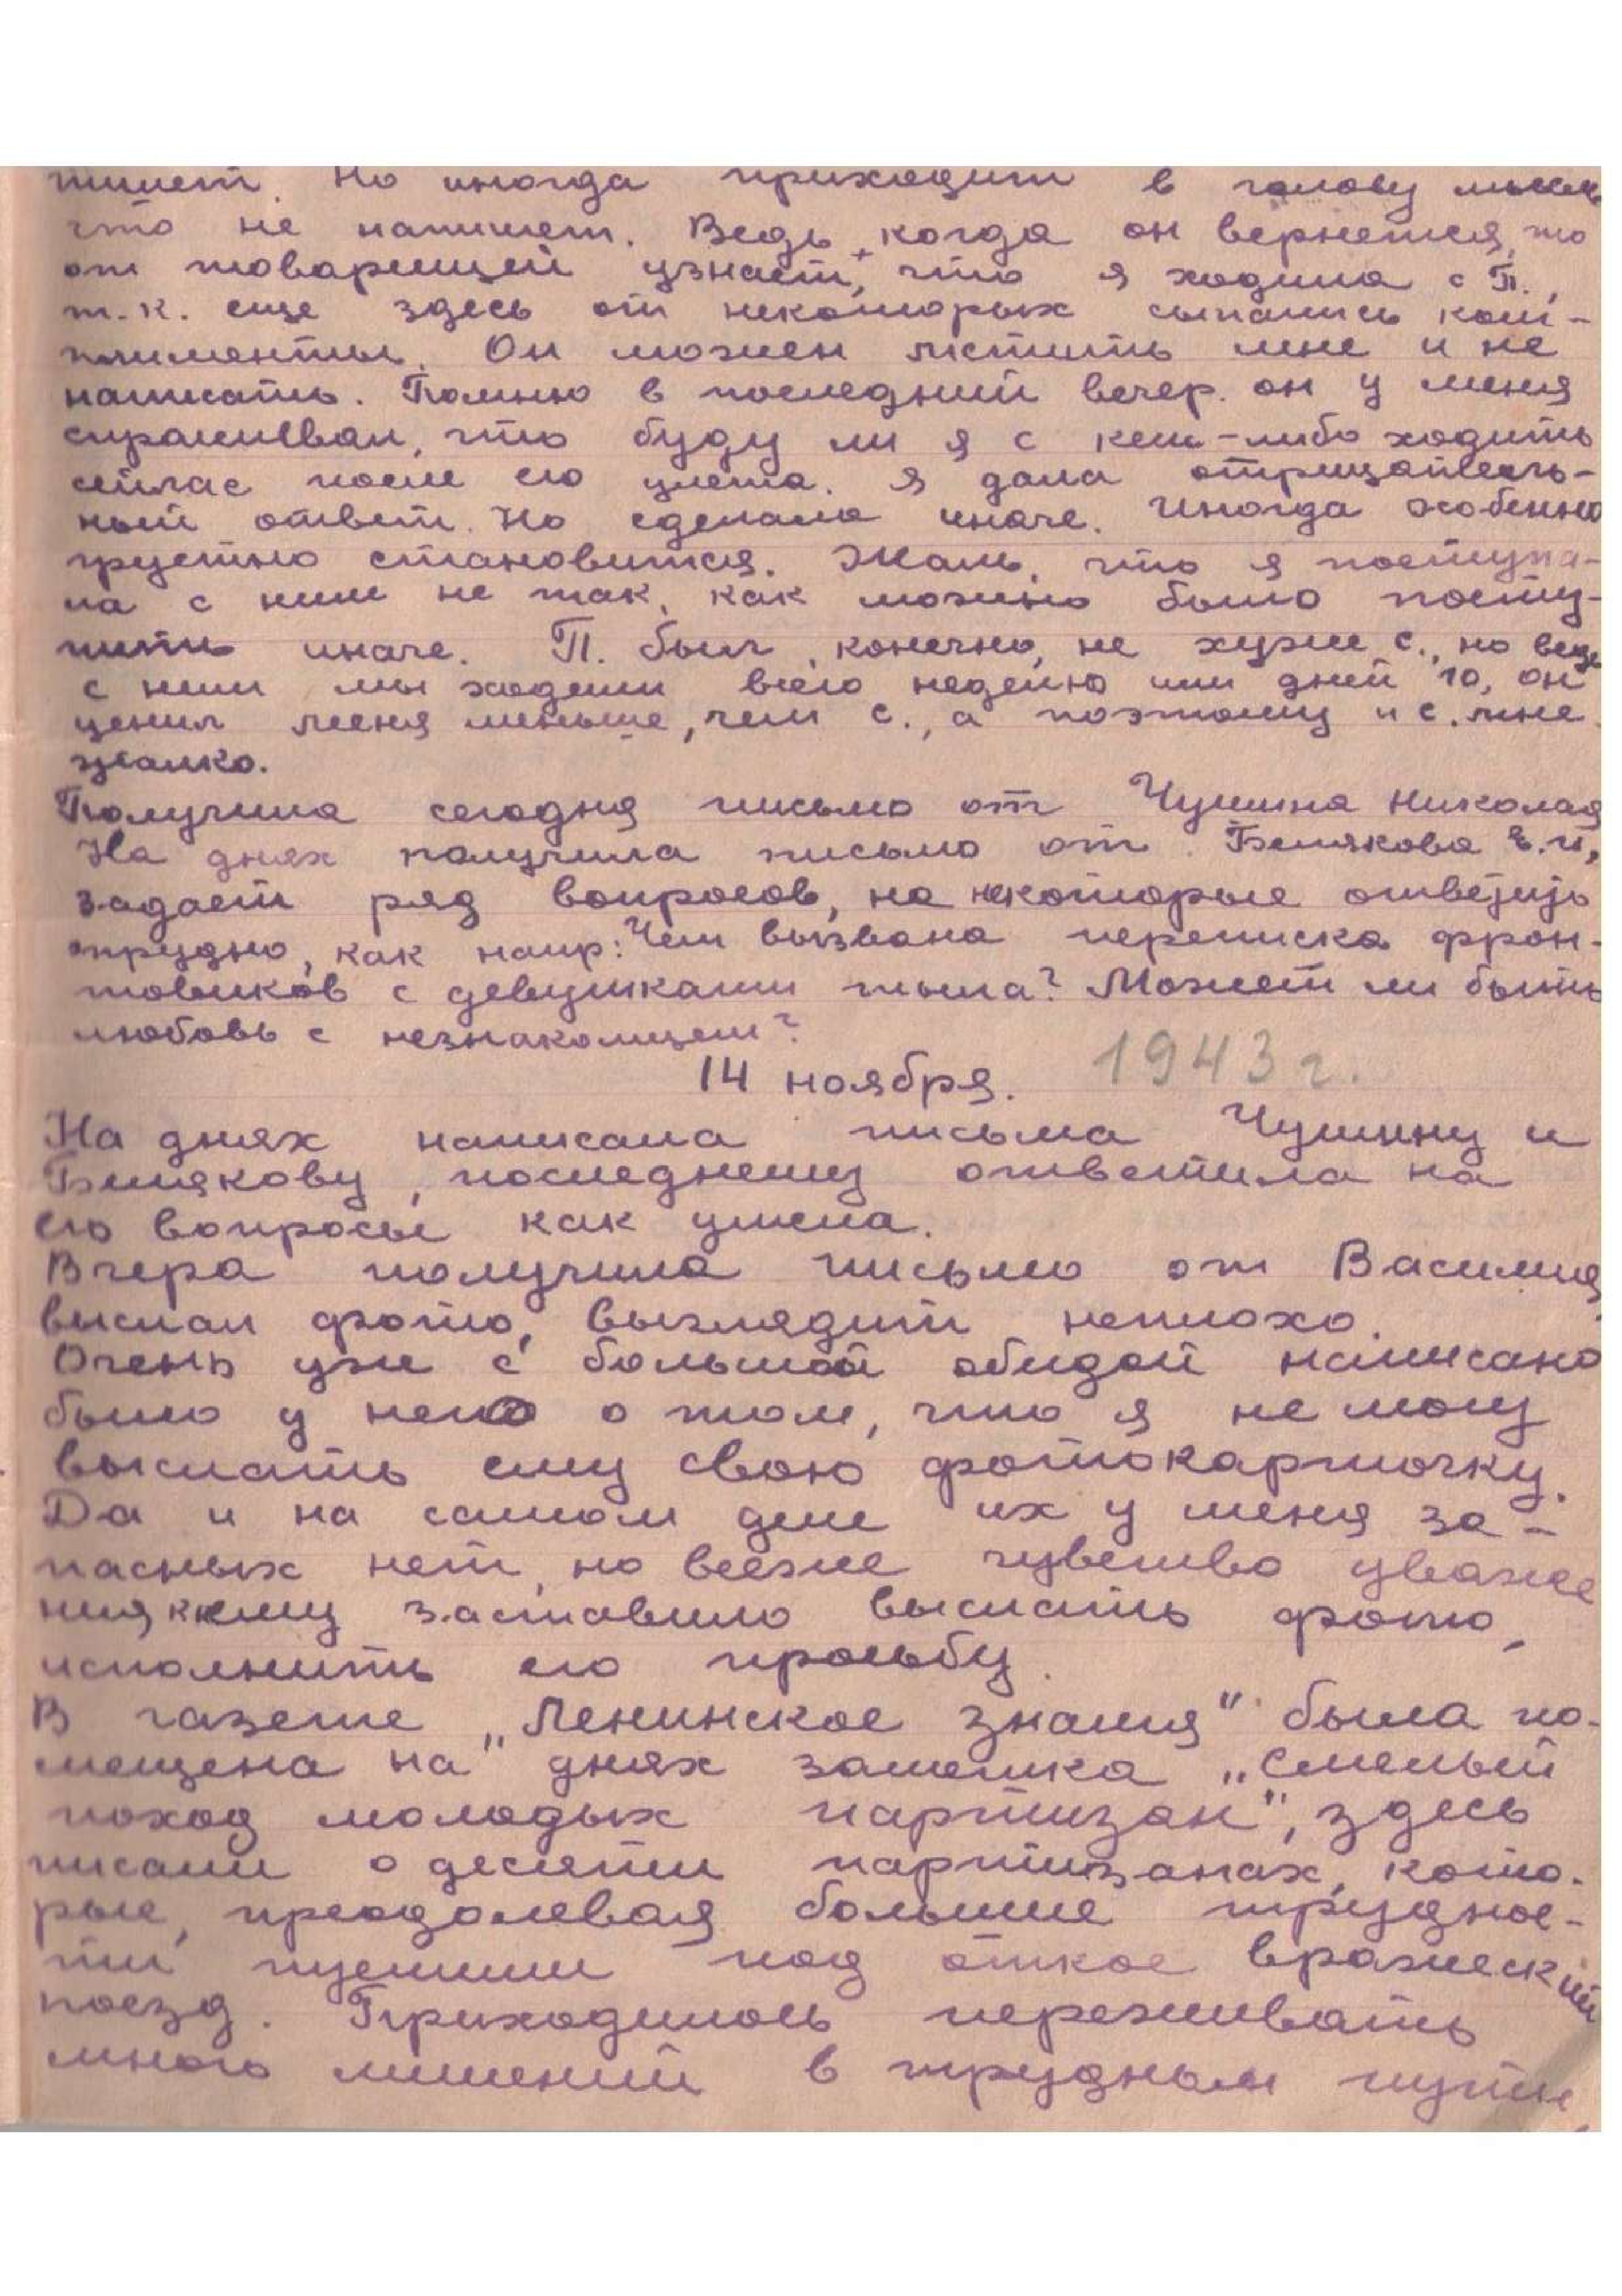 пишет. Но иногда приходит в голову мысль
что не напишет. Ведь, когда он вернется, то
от товарищей узнает, что я ходила с П.,
т.к. еще здесь от некоторых сыпались ком-
плименты. Он может мстить мне и не
написать. Помню в последний вечер он у меня
спрашивал, что буду ли я с кем-либо ходить
сейчас после его улета. Я дала отрицатель-
ный ответ. Но сделала иначе. Иногда особенно
грустно становится. Жаль, что я поступа-
ла с ним не так, как можно было посту-
пить иначе. П. был, конечно, не хуже С., но ведь
с ним мы ходили всего неделю или дней 10, он
ценил меня меньше, чем С., а поэтому и С. мне
жалко.
Получила сегодня письмо от Чушина Николая
На днях получила письмо от Белякова Е.И,
задает ряд вопросов, на некоторые ответить
трудно, как напр: Чем вызвана переписка фрон-
товиков с девушками тыла? Может ли быть
любовь с незнакомцем?
14 ноября. 1943 г.
На днях написала письма Чушину и
Белякову, последнему ответила на
его вопросы как умела.
Вчера получила письмо от Василия
выслал фото, выглядит неплохо.
Очень уж с большой обидой написано
было у него о том, что я не могу
выслать ему свою фотокарточку.
Да и на самом деле их у меня за-
пасных нет, но всеже чувство уваже
ния к нему заставило выслать фото,
исполнить его просьбу.
В газете „Ленинское знамя" была по-
мещена на днях заметка „Смелый
поход молодых партизан", здесь
писали о десяти партизанах, кото-
рые, преодолевая большие труднос-
ти пустили под откос вражеский
поезд. Приходилось переживать
много лишений в трудном пути,